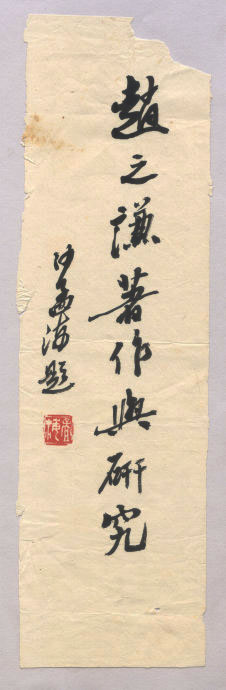 趙之謙著作與研究
沙孟海題